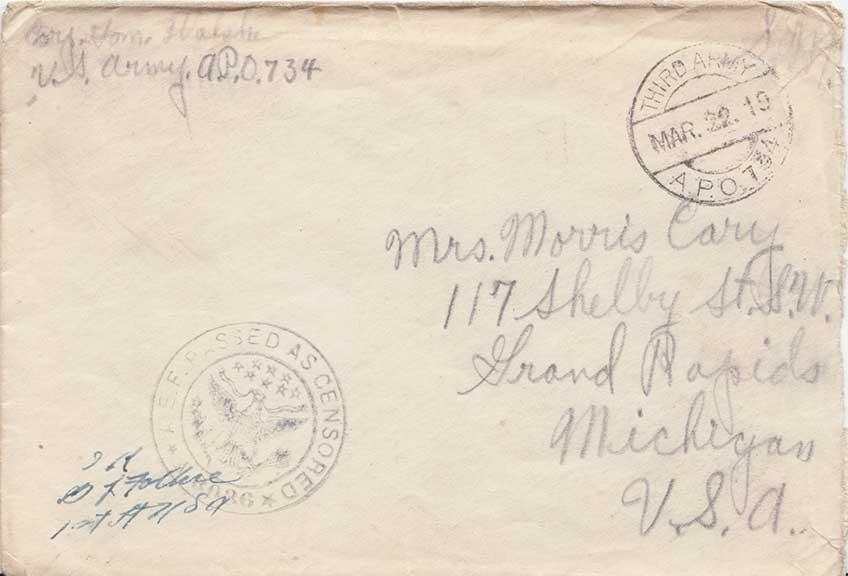 Corp. Thom. Walsh
U.S. Army. A.P.O. 734
THIRD ARMY
MAR. 22. 19
A.P.O. 734
Mrs. Morris Cary
117 Shelby St. S.W.
Grand Rapids
Michigan
U.S.A.
A.E.F. PASSED AS CENSORED
OK
1st Lt USA